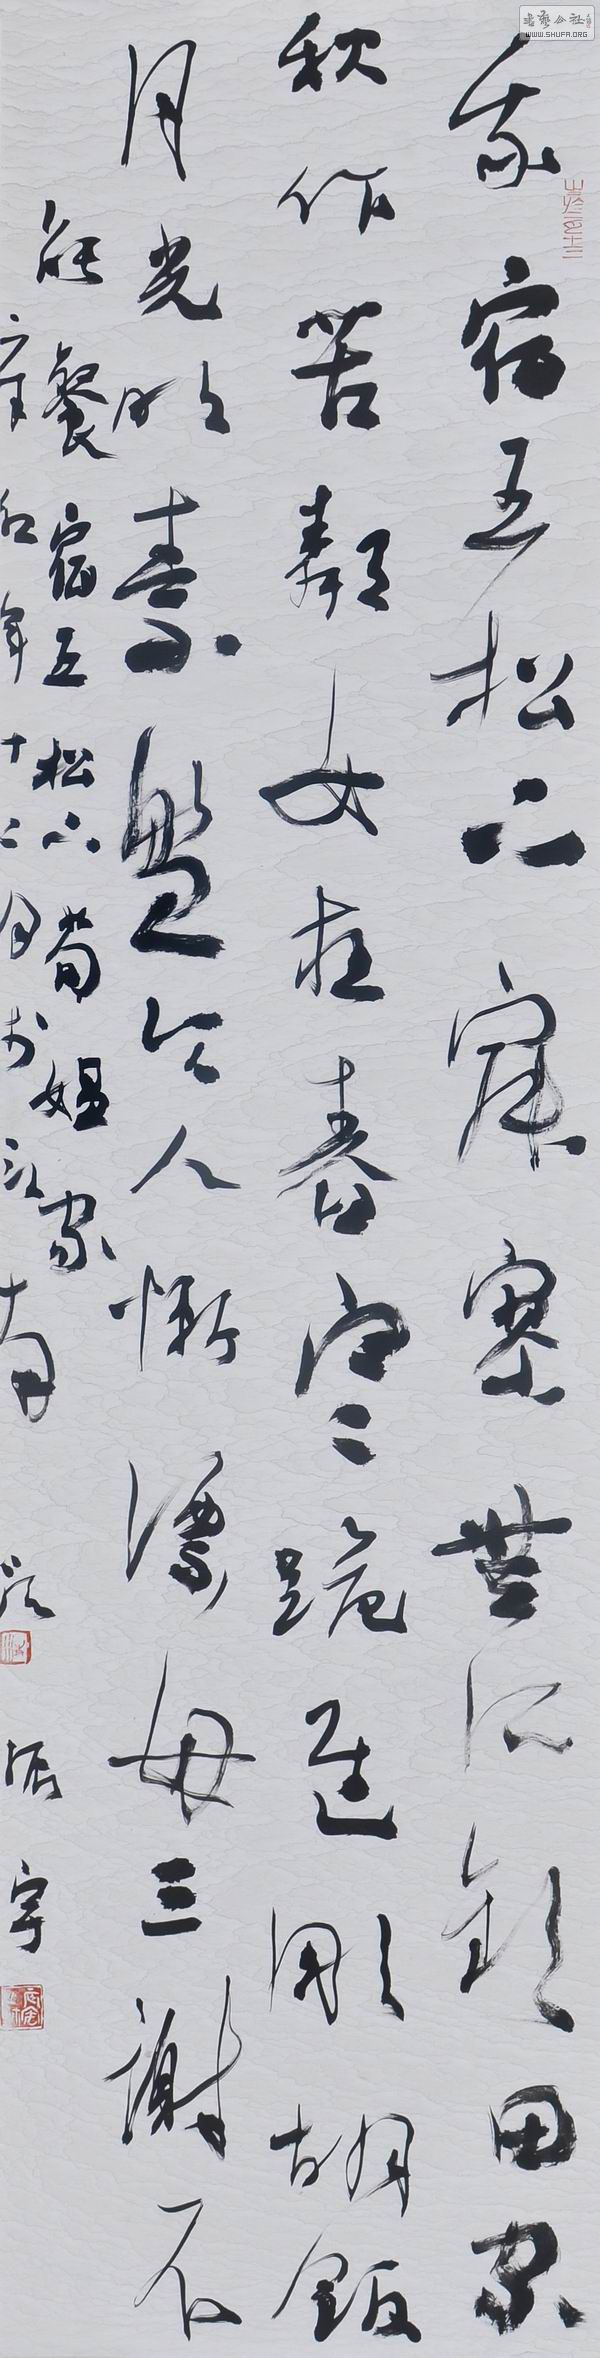 書藝公社
WWW.SHUFA.ORG
我宿五松下寂寥無所歡田家
秋作苦鄰女夜舂寒跪進彫胡飯
月光明素盤令人慚漂母三謝不
能餐 宿五松下荀媼家
年十二月於南 振宇